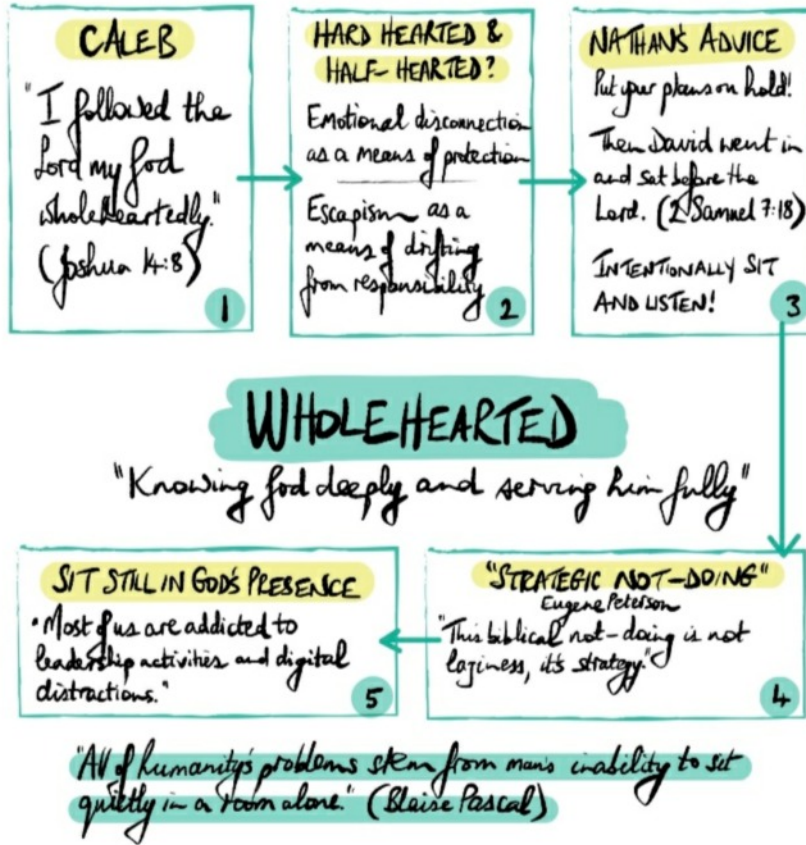 CALEB
"I followed the
Lord my God
wholeheartedly."
(Joshua 14:8)
1
HARD HEARTED &
HALF-HEARTED?
Emotional disconnection
as a means of protection
Escapism as a
means of drifting
from responsibility
2
NATHAN'S ADVICE
Put your plans on hold!
Then David went in
and sat before the
Lord. (2 Samuel 7:18)
INTENTIONALLY SIT
AND LISTEN!
3
WHOLEHEARTED
"Knowing God deeply and serving him fully"
"STRATEGIC NOT-DOING"
Eugene Peterson
"This biblical not-doing is not
laziness, it's strategy."
4
SIT STILL IN GOD'S PRESENCE
"Most of us are addicted to
leadership activities and digital
distractions."
5
"All of humanity's problems stem from man's inability to sit
quietly in a room alone." (Blaise Pascal)